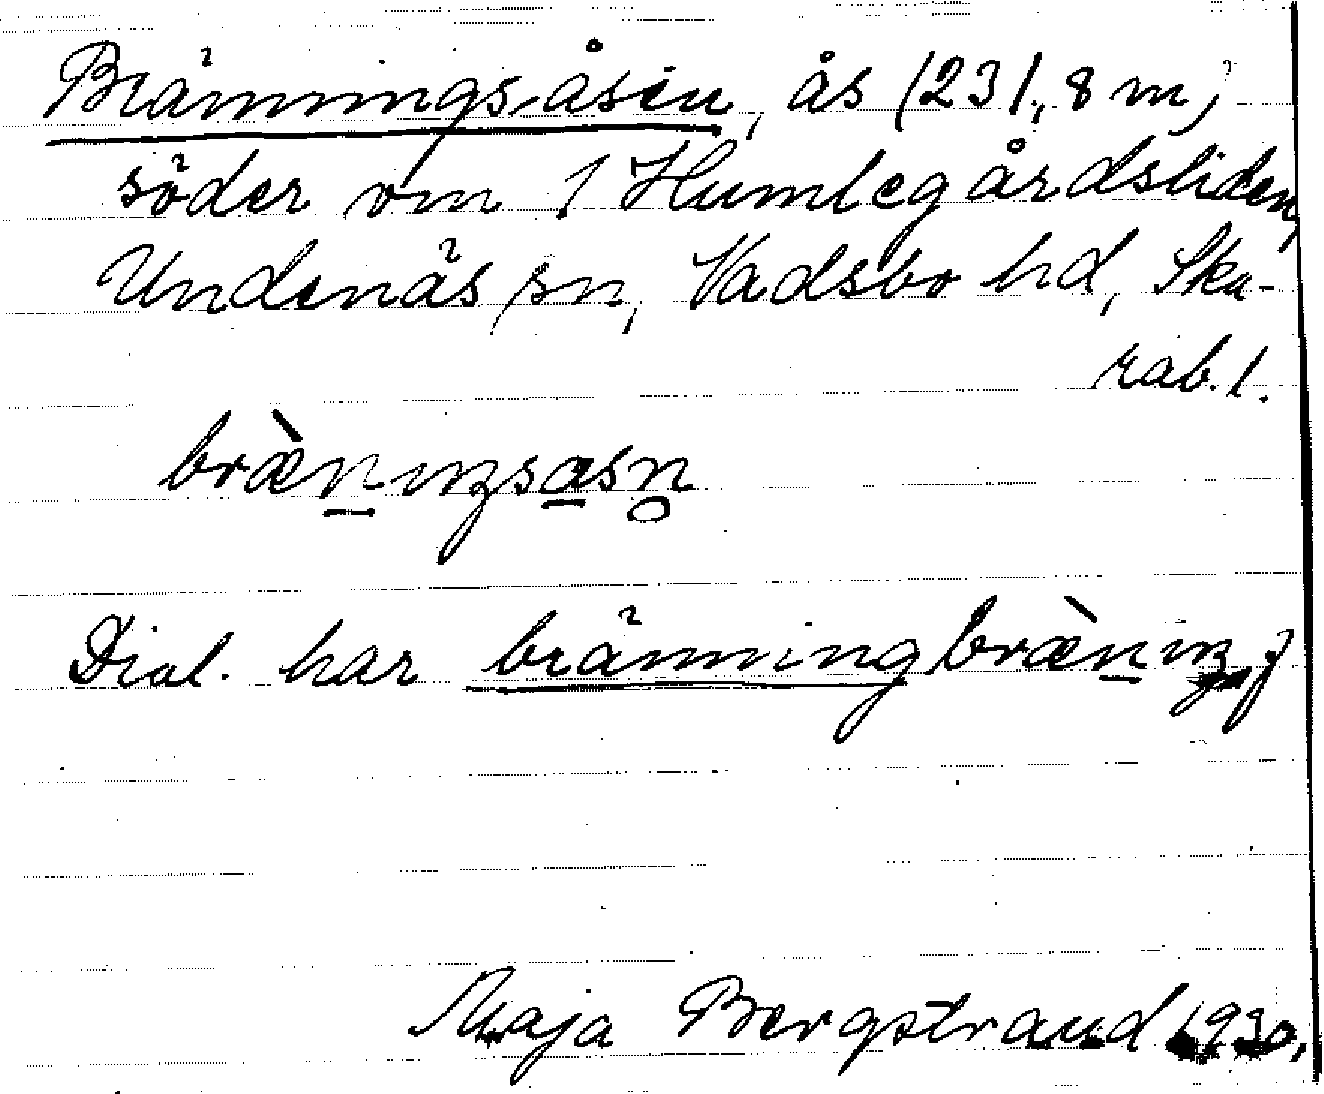 Bränningsåsen, ås (231,8 m)
söder om l Humlegårdsliden,
Undenäs sn, Vadsbo hd, Ska-
rab. l.
bræ̀n̲ıŋsa̲sn̥
Dial. har bränning bræ̀n̲ıŋ, f
Maja Bergstrand 1930.